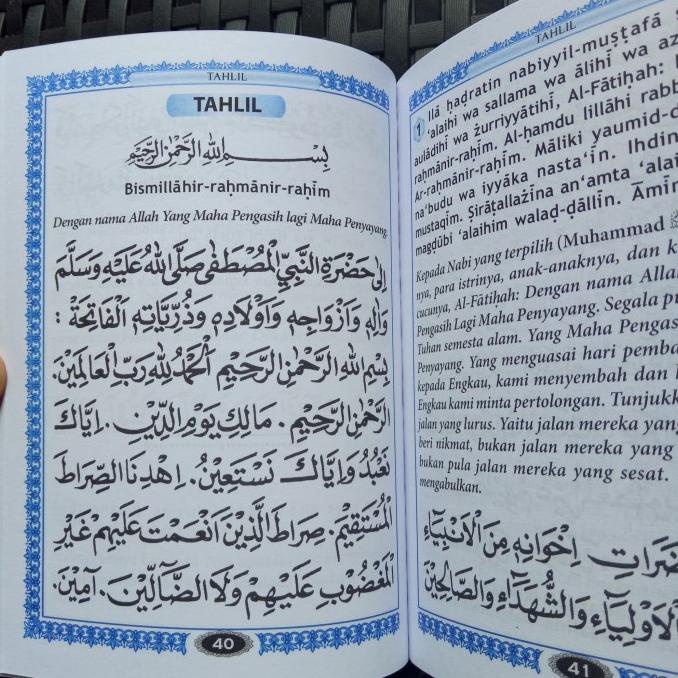 TAHLIL
TAHLIL
بِسْــــمِ اللهِ الرَّحْمٰنِ الرَّحِيْمِ
Bismillāhir-raḥmānir-raḥīm
Dengan nama Allah Yang Maha Pengasih lagi Maha Penyayang
اِلٰى حَضْرَةِ النَّبِيِّ الْمُصْطَفٰى صَلَّى اللهُ عَلَيْهِ وَسَلَّمَ
وَاٰلِهٖ وَاَزْوَاجِهٖ وَاَوْلَادِهٖ وَذُرِّيَّاتِهِ الْفَاتِحَةْ :
بِسْمِ اللهِ الرَّحْمٰنِ الرَّحِيْمِ اَلْحَمْدُ لِلّٰهِ رَبِّ الْعَالَمِيْنَ.
الرَّحْمٰنِ الرَّحِيْمِ. مَالِكِ يَوْمِ الدِّيْنِ. اِيَّاكَ
نَعْبُدُ وَاِيَّاكَ نَسْتَعِيْنُ. اِهْدِنَا الصِّرَاطَ
الْمُسْتَقِيْمَ. صِرَاطَ الَّذِيْنَ اَنْعَمْتَ عَلَيْهِمْ غَيْرِ
الْمَغْضُوْبِ عَلَيْهِمْ وَلَا الضَّاۤلِّيْنَ. آمِيْنَ.
40
TAHLIL
1
Ilā ḥaḍratin nabiyyil-muṣṭafā
‘alaihi wa sallama wa ālihī wa
aulādihī wa żurriyyātihī, Al-Fātiḥah:
raḥmānir-raḥīm. Al-ḥamdu lillāhi rabb
Ar-raḥmānir-raḥīm. Māliki yaumid-d
na‘budu wa iyyāka nasta‘īn. Ihdin
mustaqīm. Ṣirāṭallażīna an‘amta ‘alai
magḍūbi ‘alaihim walad-ḍāllīn. Āmīn
Kepada Nabi yang terpilih (Muhammad ﷺ
nya, para istrinya, anak-anaknya, dan
cucunya, Al-Fātiḥah: Dengan nama Alla
Pengasih Lagi Maha Penyayang. Segala
Tuhan semesta alam. Yang Maha Pengas
Penyayang. Yang menguasai hari pemba
kepada Engkau, kami menyembah dan
Engkau kami minta pertolongan. Tunjukk
jalan yang lurus. Yaitu jalan mereka yang
beri nikmat, bukan jalan mereka yang
bukan pula jalan mereka yang sesat.
mengabulkan.
ضَرَاتِ اِخْوَانِهٖ مِنَ الْاَنْبِيَاۤءِ
الْاَوْلِيَاۤءِ وَالشُّهَدَاۤءِ وَالصَّالِحِيْنَ
41